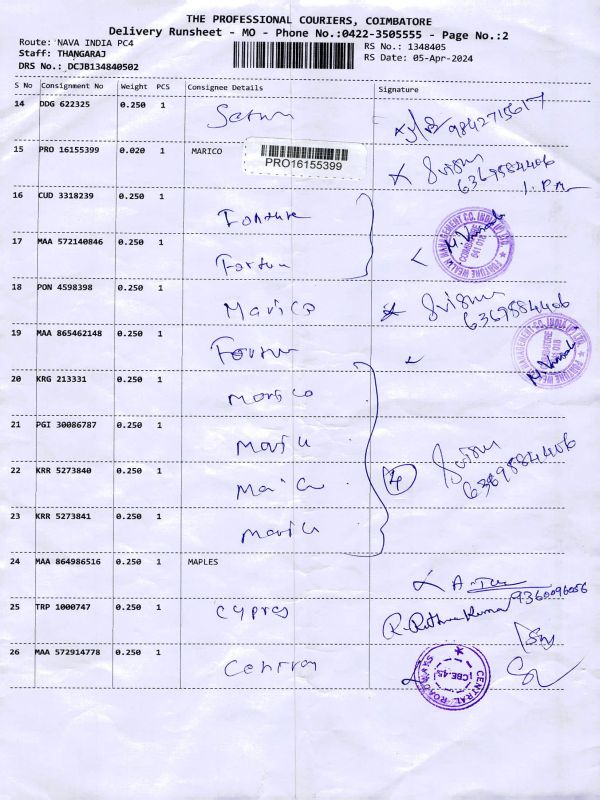 THE PROFESSIONAL COURIERS, COIMBATORE
Delivery Runsheet - MO - Phone No.:0422-3505555 - Page No.:2
Route: NAVA INDIA PC4
RS No.: 1348405
Staff: THANGARAJ
RS Date: 05-Apr-2024
DRS No.: DCJB134840502
S No Consignment No Weight PCS Consignee Details Signature
14 DDG 622325 0.250 1 9842715617
15 PRO 16155399 0.020 1 MARICO
PRO16155399
6369584406
1. P.M
16 CUD 3318239 0.250 1 Fortune
17 MAA 572140846 0.250 1 Fortun
FORTUNE WEALTH MANAGEMENT CO. INDIA (P) LTD.
COIMBATORE
641 018
18 PON 4598398 0.250 1 Marico
6369584406
19 MAA 865462148 0.250 1 Fortun
FORTUNE WEALTH MANAGEMENT CO. INDIA (P) LTD.
COIMBATORE
641 018
20 KRG 213331 0.250 1 Marico
21 PGI 30086787 0.250 1 Mari
22 KRR 5273840 0.250 1 4
6369584406
23 KRR 5273841 0.250 1
24 MAA 864986516 0.250 1 MAPLES
9360096056
25 TRP 1000747 0.250 1 Cypres
26 MAA 572914778 0.250 1
CENTRAL ROADWAYS
CBE-45